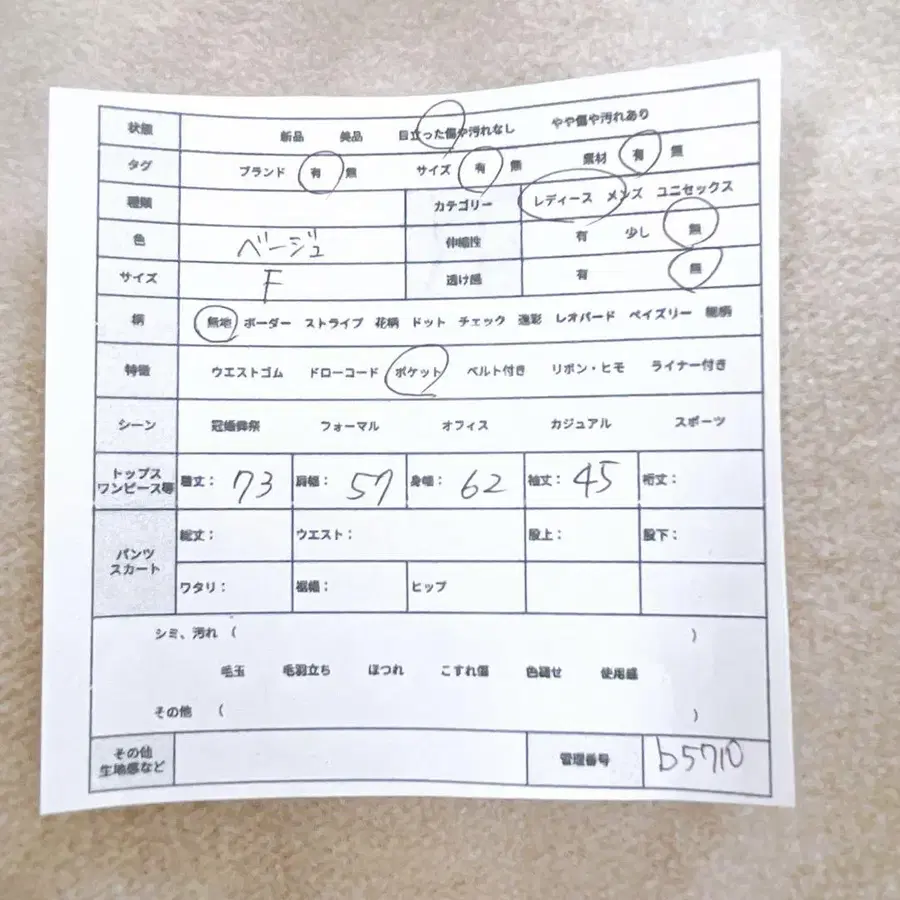 状態 新品 美品 目立った傷や汚れなし やや傷や汚れあり
タグ ブランド 有 無 サイズ 有 無 素材 有 無
種類 カテゴリー レディース メンズ ユニセックス
色 ベージュ 伸縮性 有 少し 無
サイズ F 透け感 有 無
柄 無地 ボーダー ストライプ 花柄 ドット チェック 迷彩 レオパード ペイズリー 総柄
特徴 ウエストゴム ドローコード ポケット ベルト付き リボン・ヒモ ライナー付き
シーン 冠婚葬祭 フォーマル オフィス カジュアル スポーツ
トップス
ワンピース等 着丈: 73 肩幅: 57 身幅: 62 袖丈: 45 裄丈:
パンツ
スカート
総丈: ウエスト: 股上: 股下:
ワタリ: 裾幅: ヒップ
シミ、汚れ ( )
毛玉 毛羽立ち ほつれ こすれ傷 色褪せ 使用感
その他 ( )
その他
生地感など 管理番号 b5710